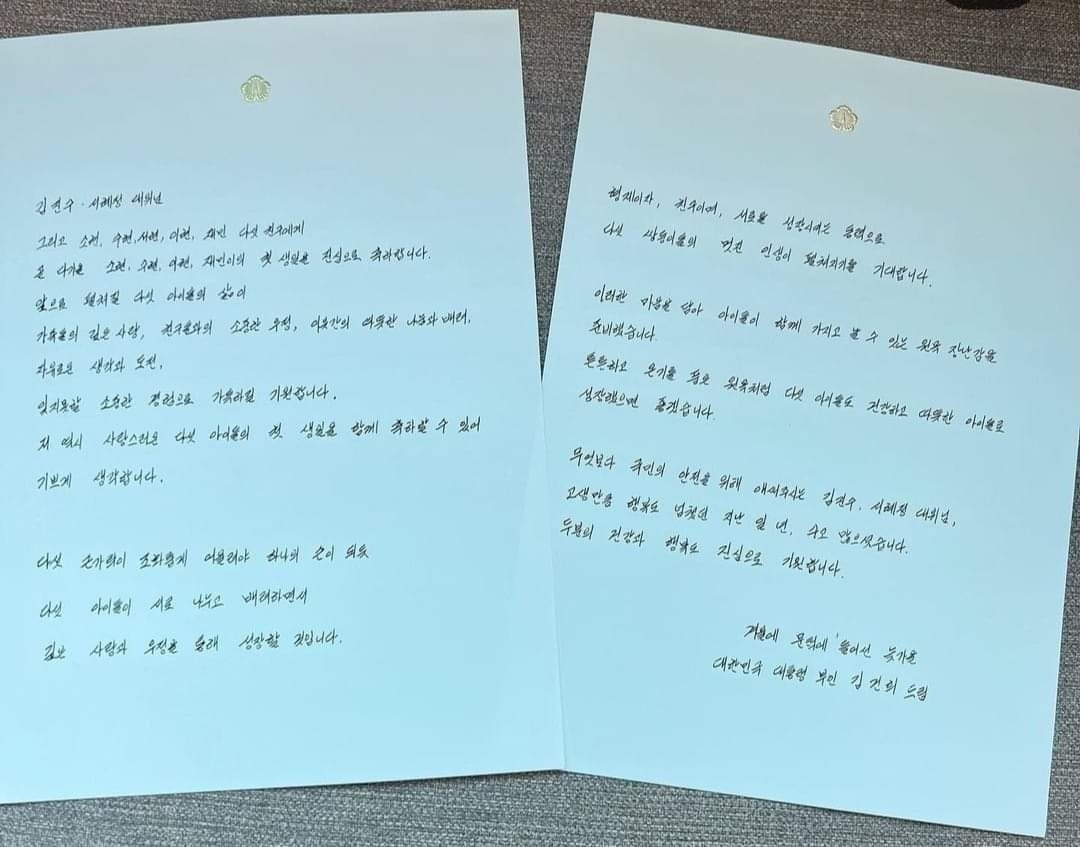 김진수 · 서혜정 대위님
그리고 소현, 수현, 서현, 이현, 재민 다섯 친구에게
곧 다가올 소현, 수현, 이현, 재민이의 첫 생일을 진심으로 축하합니다.
앞으로 펼쳐질 다섯 아이들의 삶이
가족들의 깊은 사랑, 친구들과의 소중한 우정, 이웃간의 따뜻한 나눔과 배려,
자유로운 생각과 도전,
잊지못할 소중한 경험으로 가득하길 기원합니다.
저 역시 사랑스러운 다섯 아이들의 첫 생일을 함께 축하할 수 있어
기쁘게 생각합니다.
다섯 손가락이 조화롭게 어울려야 하나의 손이 되듯
다섯 아이들이 서로 나누고 배려하면서
깊은 사랑과 우정을 통해 성장할 것입니다.
형제이자, 친구이며, 서로를 성장시키는 동력으로
다섯 쌍둥이들의 멋진 인생이 펼쳐지기를 기대합니다.
이러한 마음을 담아 아이들이 함께 가지고 놀 수 있는 원목 장난감을
준비했습니다.
튼튼하고 온기를 품은 원목처럼 다섯 아이들도 건강하고 따뜻한 아이들로
성장했으면 좋겠습니다.
무엇보다 국민의 안전을 위해 애써주시는 김진수, 서혜정 대위님,
고생만큼 행복도 넘쳤던 지난 일 년, 수고 많으셨습니다.
두분의 건강과 행복도 진심으로 기원합니다.
겨울에 문턱에 들어선 늦가을
대한민국 대통령 부인 김건희 드림